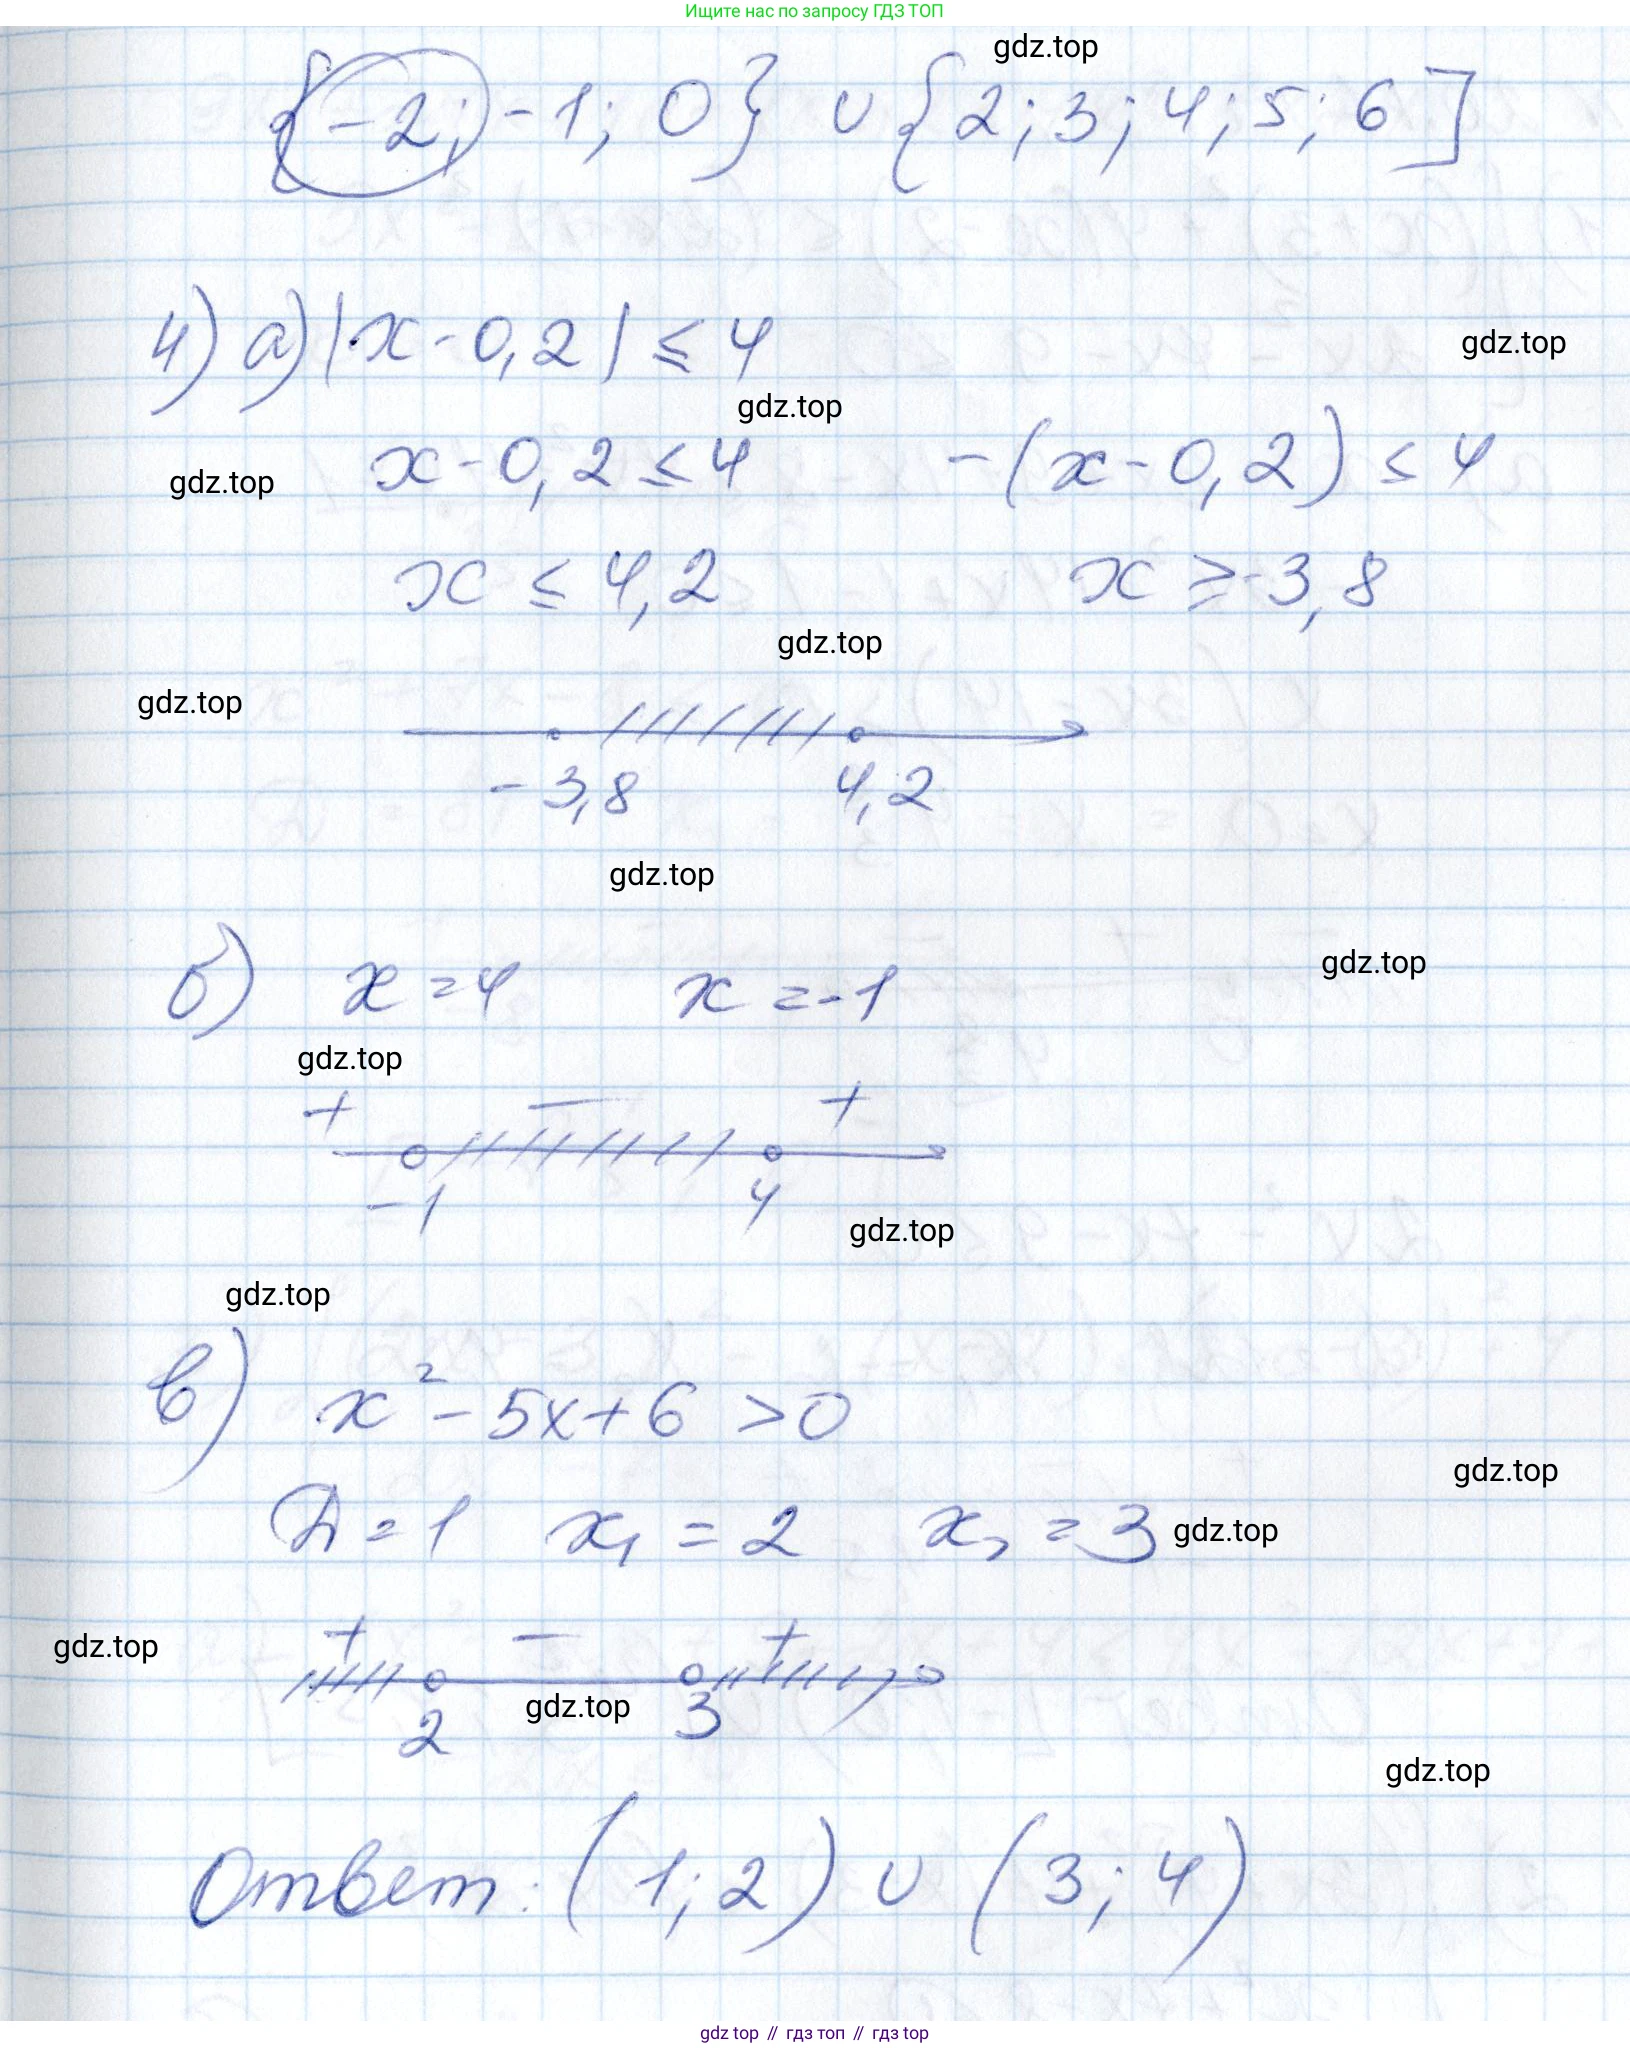 Ищите нас по запросу ГДЗ ТОП
gdz.top
{-2; -1; 0} ∪ {2; 3; 4; 5; 6]
4) а) |x - 0,2| ≤ 4
gdz.top
gdz.top
x - 0,2 ≤ 4 -(x - 0,2) ≤ 4
gdz.top
x ≤ 4,2 x ≥ -3,8
gdz.top
gdz.top
-3,8 4,2
gdz.top
б) x = 4 x = -1
gdz.top
gdz.top
+ − +
-1 4
gdz.top
gdz.top
в) x² - 5x + 6 > 0
gdz.top
Д = 1 x₁ = 2 x₂ = 3
gdz.top
+ − +
gdz.top
2 3
gdz.top
gdz.top
Ответ: (1; 2) ∪ (3; 4)
gdz top // гдз топ // гдз top